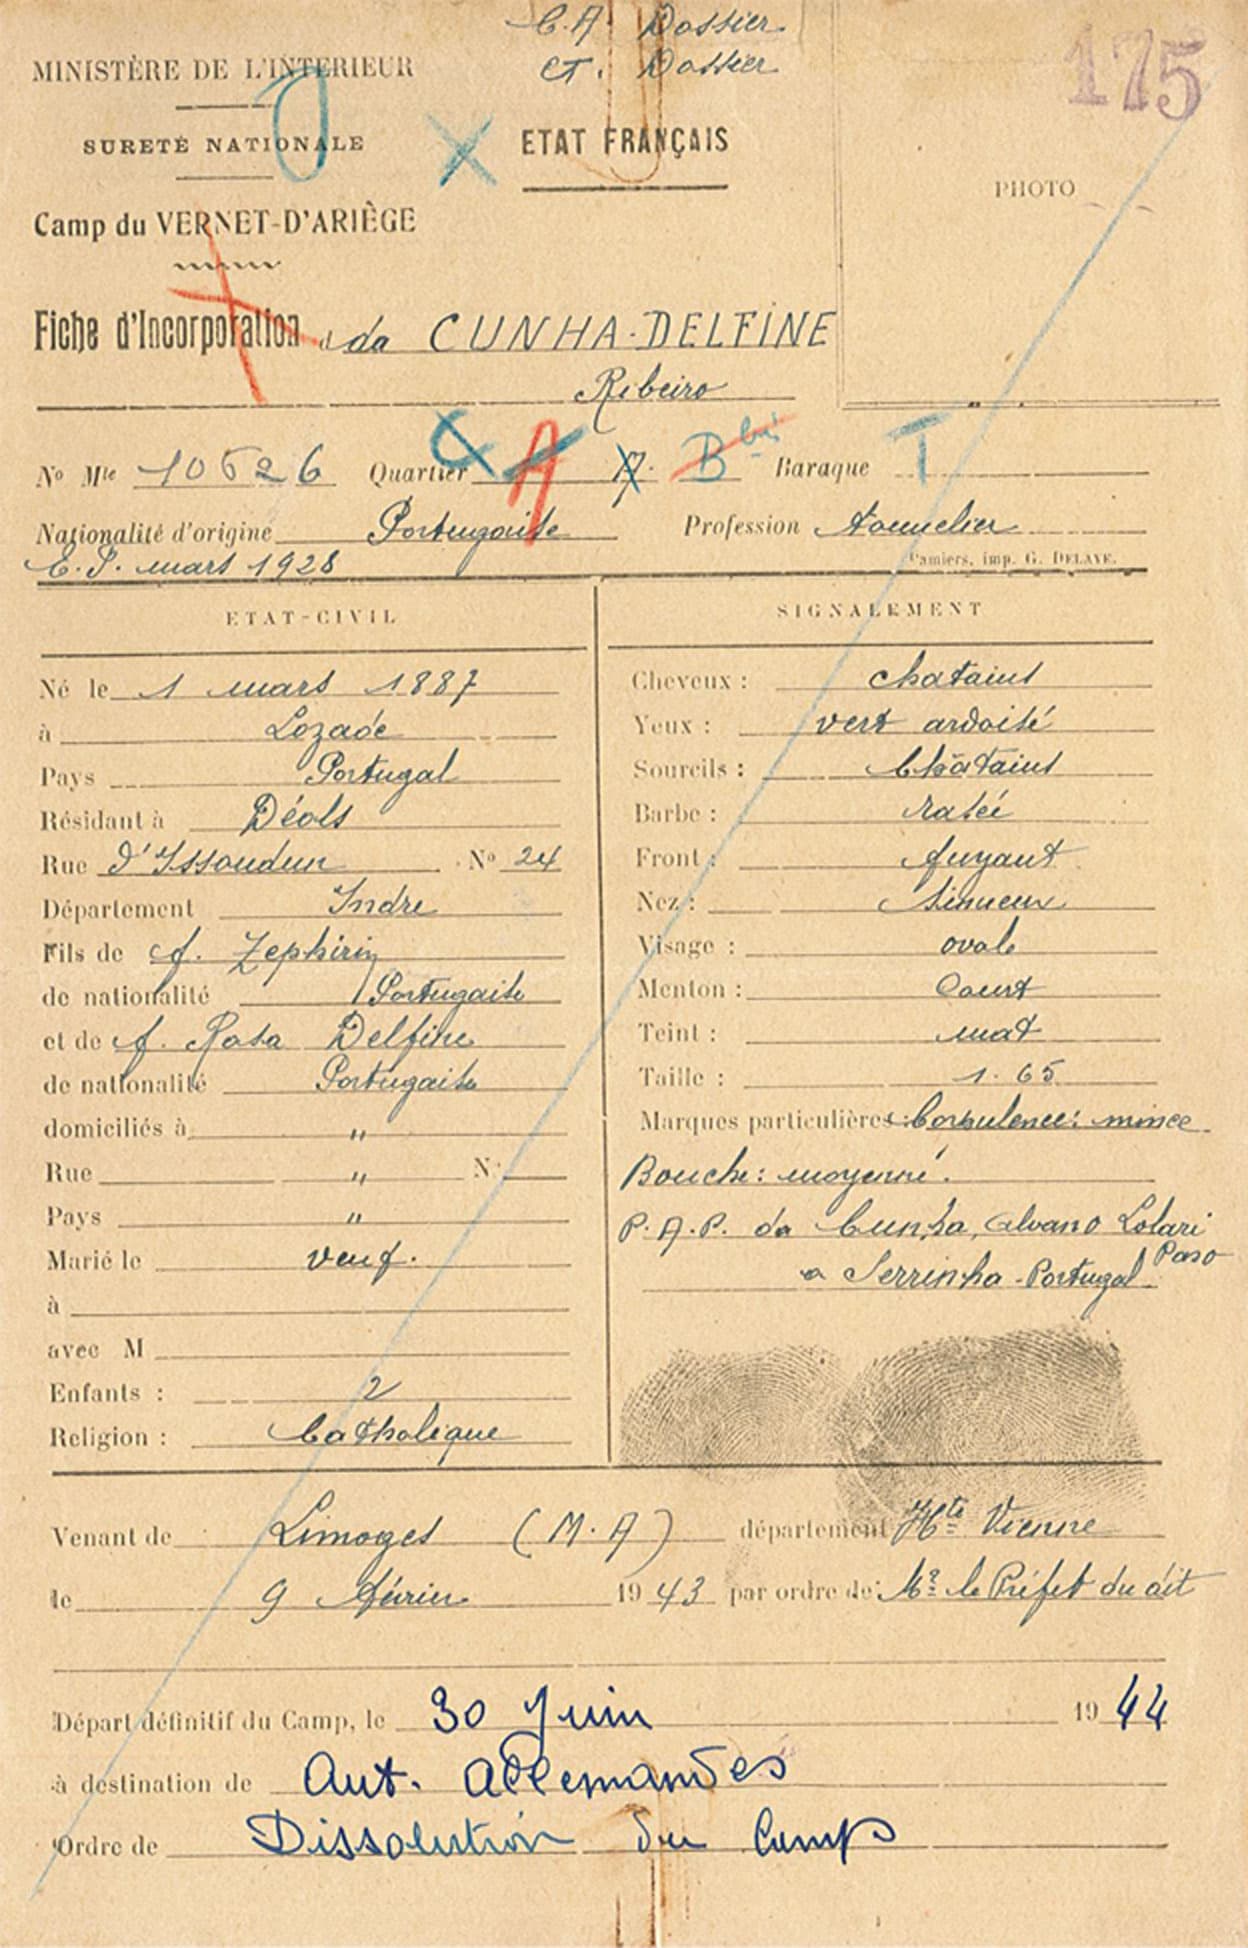 C.A. Dossier
CT. Dossier
175
MINISTÈRE DE L'INTERIEUR
SURETÉ NATIONALE
ETAT FRANÇAIS
PHOTO
Camp du VERNET-D'ARIÈGE
Fiche d'Incorporation d da CUNHA-DELFINE
Ribeiro
No Mle 10526 Quartier A A. B bis Baraque T
Nationalité d'origine Portugaise Profession tonnelier
E.P. mars 1928
Pamiers, imp. G. DELAYE.
ETAT-CIVIL
Né le 1 mars 1887
à Lozade
Pays Portugal
Résidant à Déols
Rue d'Issoudun No 24
Département Indre
Fils de f. Zephirin
de nationalité Portugaise
et de f. Rosa Delfine
de nationalité Portugaise
domiciliés à "
Rue " N°
Pays "
Marié le veuf.
à
avec M
Enfants : 2
Religion : Catholique
SIGNALEMENT
Cheveux : chatains
Yeux : vert ardoisé
Sourcils : Châtains
Barbe : rasée
Front : fuyant
Nez : Sinueux
Visage : ovale
Menton : Court
Teint : mat
Taille : 1.65
Marques particulières : Corpulence: mince
Bouche : moyenne.
P.A.P. da Cunha, Alvano Lolari
Paso
a Serrinha - Portugal
Venant de Limoges (M.A) département Hte Vienne
le 9 février 1943 par ordre de Mr. le Préfet du dit
Départ définitif du Camp, le 30 Juin 1944
à destination de Aut. Allemandes
Ordre de Dissolution du Camp